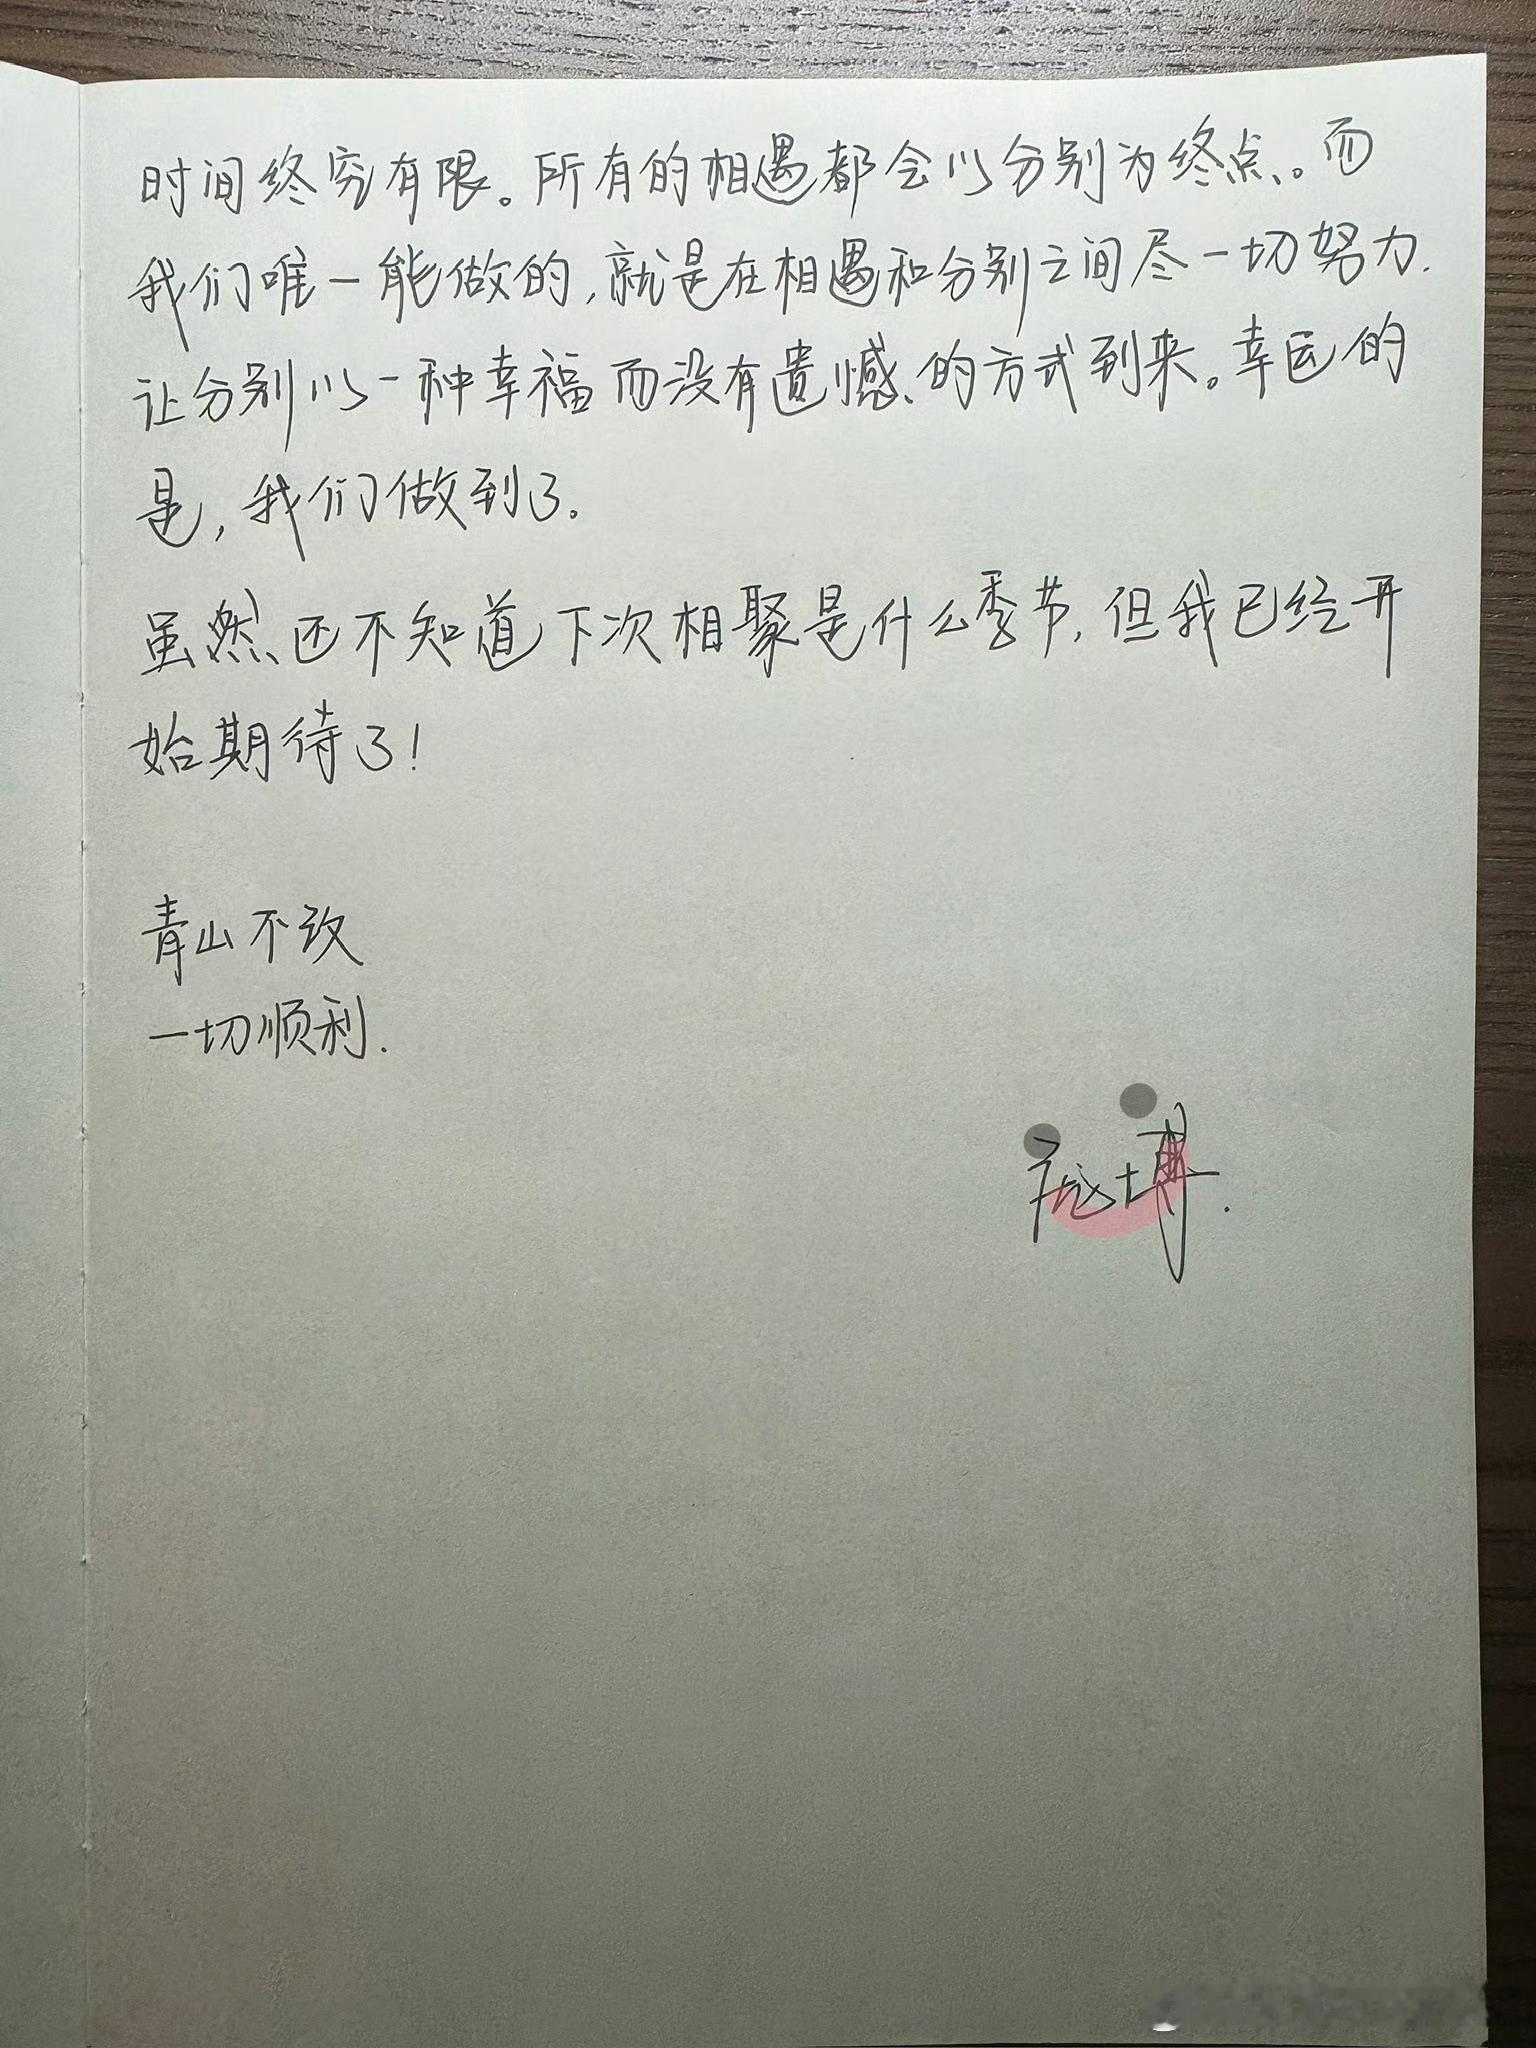 时间终究有限。所有的相遇都会以分别为终点。而
我们唯一能做的，就是在相遇和分别之间尽一切努力.
让分别以一种幸福而没有遗憾的方式到来。幸运的
是，我们做到了.
虽然还不知道下次相聚是什么季节，但我已经开
始期待了！
青山不改
一切顺利.
庞博.